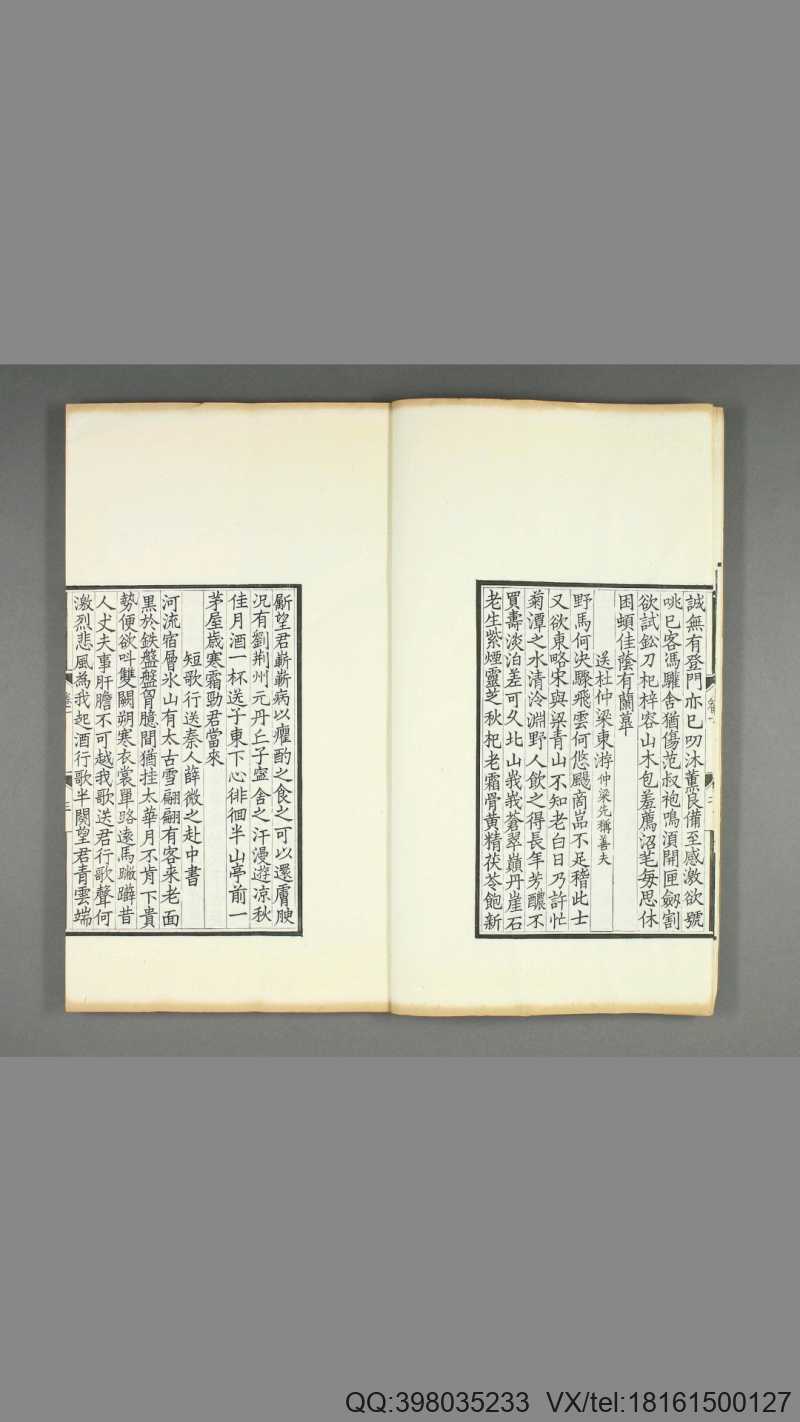 誠無有登門亦已叨沐薰良備至感激欲號
咷已客馮驩舍猶傷范叔袍鳴湏開匣劒割
欲試鈆刀杞梓容山木包羞薦沼芼每思休
困蝢佳蔭有蘭蕇
送杜仲梁東游仲梁先稱善夫
野馬何決驟飛雲何悠颺商嵓不足稽此士
又欲東略宋與梁青山不知老白日乃許忙
菊潭之水清泠淵野人飲之得長年芳醲不
買壽淡泊差可久北山峩峩蒼翠巔丹崖石
老生紫煙靈芝秋杞老霜骨黄精茯苓飽新
斸望君嶄嶄病以癯酌之食之可以還膚腴
況有劉荆州元丹丘子寧舍之汗漫遊凉秋
佳月酒一杯送子東下心徘徊半山亭前一
茅屋歲寒霜勁君當來
短歌行送秦人薛微之赴中書
河流宿層氷山有太古雪翩翩有客来老面
黒於鉄盤盤胷臆間猶挂太華月不肯下貴
勢便欲呌雙闕朔寒衣裳單路遠馬蹶躃昔
人丈夫事肝膽不可越我歌送君行歌聲何
激烈悲風為我起酒行歌半闋望君青雲端
卷一
三
QQ:398035233 VX/tel:18161500127